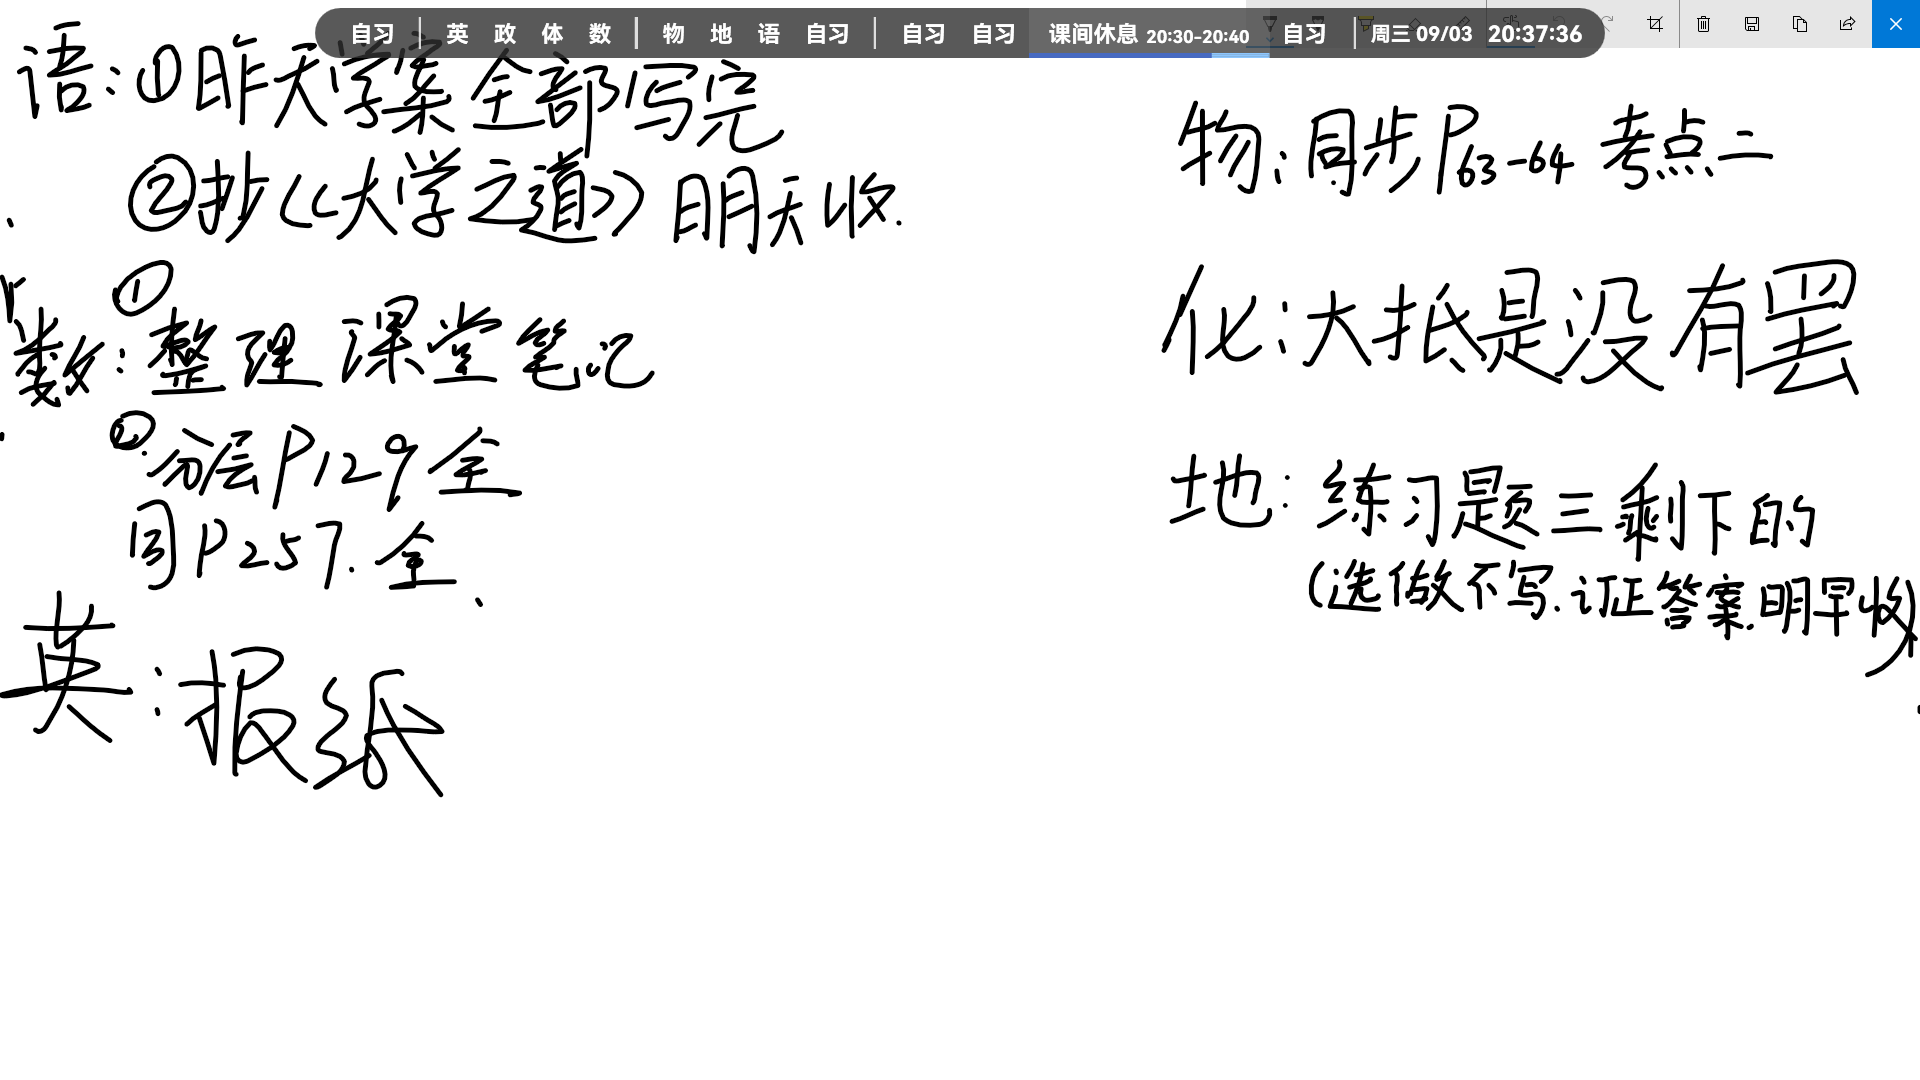 自习 | 英 政 体 数 | 物 地 语 自习 | 自习 自习 课间休息 20:30-20:40 自习 | 周三 09/03 20:37:36
语:①昨天学案全部写完
②抄《大学之道》明天收.
数:①整理课堂笔记
②分层P129全
同P257.全、
英:报纸
物:同步P63-64 考点二
化:大抵是没有罢
地:练习题三剩下的
(选做不写.订正答案.明早收)